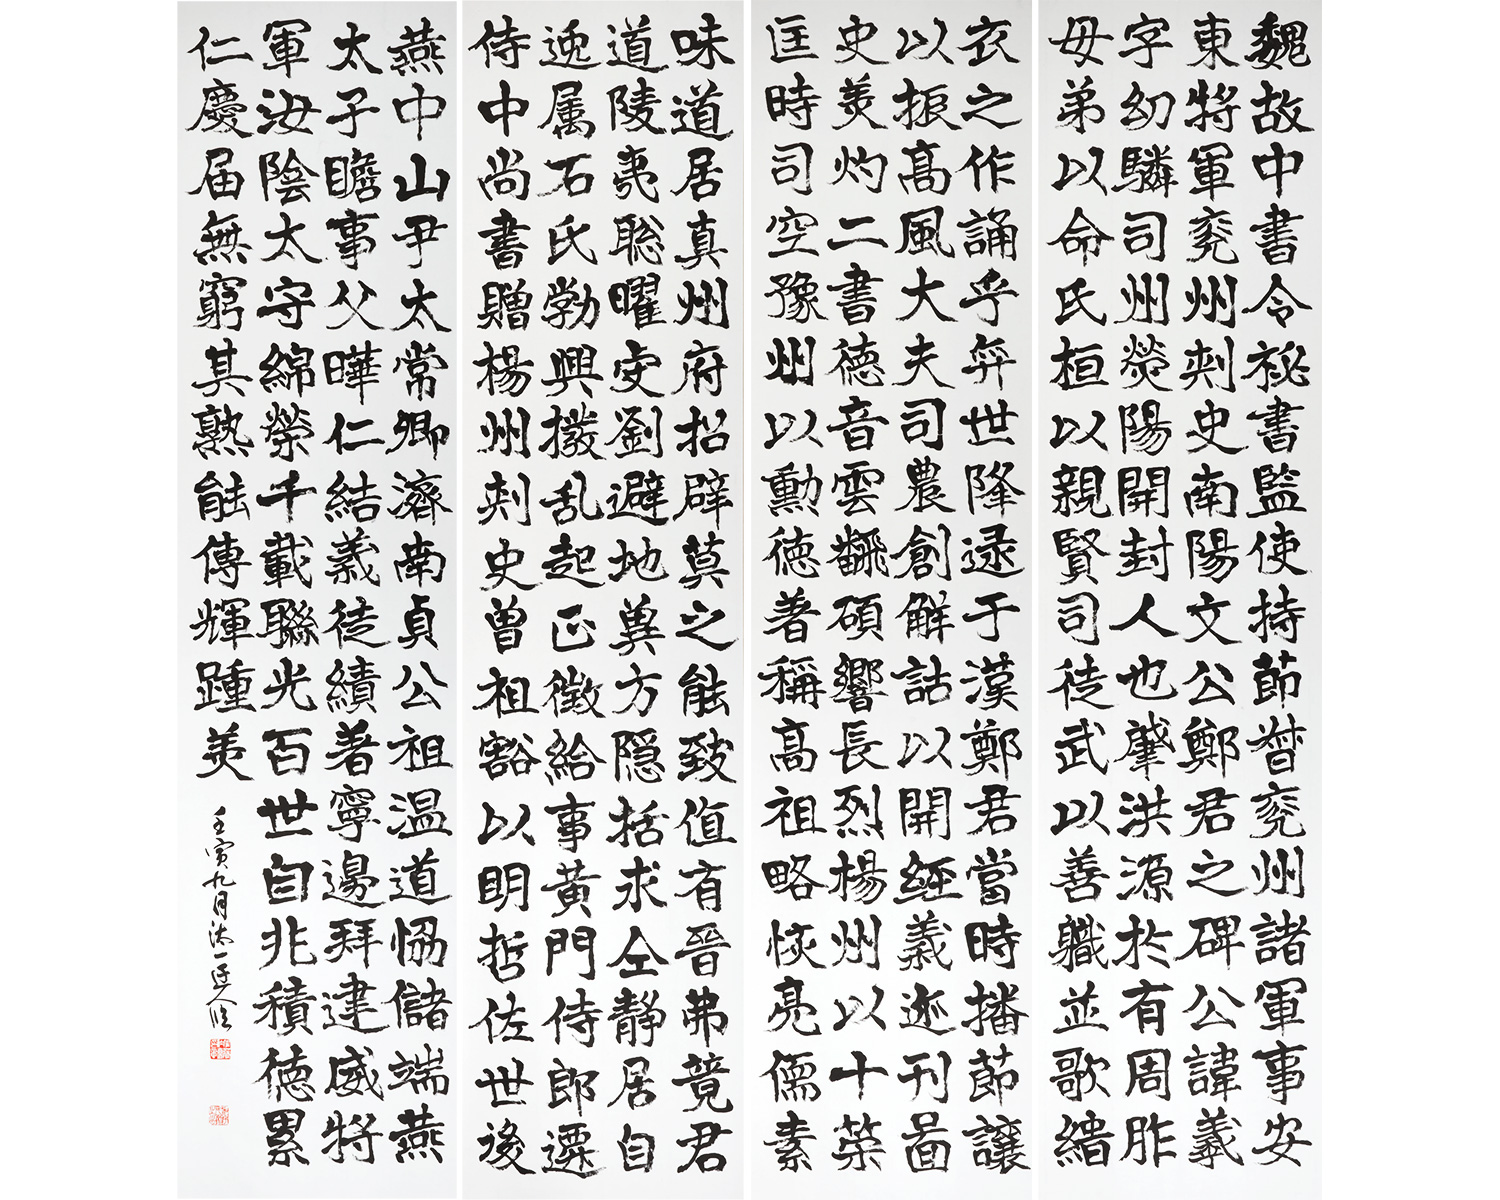 魏故中書令祕書監使持節督兗州諸軍事安
東將軍兗州刺史南陽文公鄭君之碑公諱羲
字幼驎司州熒陽開封人也肇洪源於有周胙
母弟以命氏桓以親賢司徒武以善職並歌緇
衣之作誦乎弈世降逯于漢鄭君當時播節讓
以振高風大夫司農創解詁以開經義迹刊圖
史美灼二書德音雲翻碩響長烈楊州以十榮
匡時司空豫州以勳德著稱高祖略恢亮儒素
味道居真州府招辟莫之能致值有晉弗竟君
道陵夷聡曜虔劉避地冀方隠括求仝靜居自
逸属石氏勃興撥乱起正徵給事黃門侍郎遷
侍中尚書贈楊州刺史曾祖豁以明哲佐世後
燕中山尹太常卿濟南貞公祖温道恊儲端燕
太子瞻事父曄仁結義徒績著寧邊拜建威將
軍汝陰太守綿榮千載聯光百世自非積德累
仁慶届無窮其熟能傳輝踵美
壬寅九月